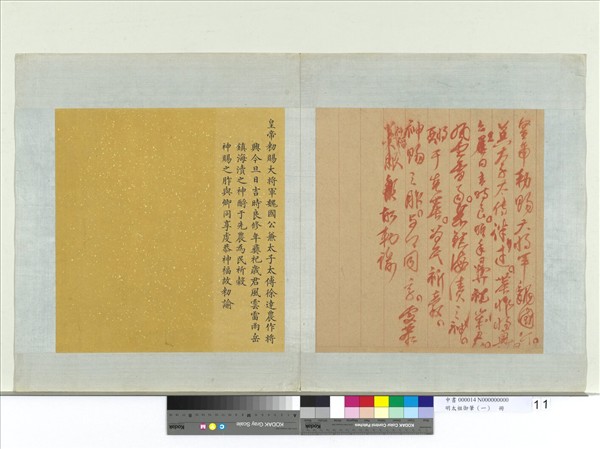 皇帝勅賜大将軍魏國公
兼太子太傅徐達農作将興
今旦日吉時良修年彝祀歳君
風雲雷雨岳鎮海瀆之神
酹于先農為民祈穀
神賜之胙与卿同享虔恭
神福故勅諭
皇帝勅賜大将軍魏國公兼太子太傅徐達農作将
興今旦日吉時良修年彝祀歳君風雲雷雨岳
鎮海瀆之神酹于先農為民祈穀
神賜之胙與卿同享虔恭神福故勅諭
KODAK Gray Scale
C Y M
Kodak
KODAK Color Control Patches
中書 000014 N000000000
明太祖御筆（一） 冊
11